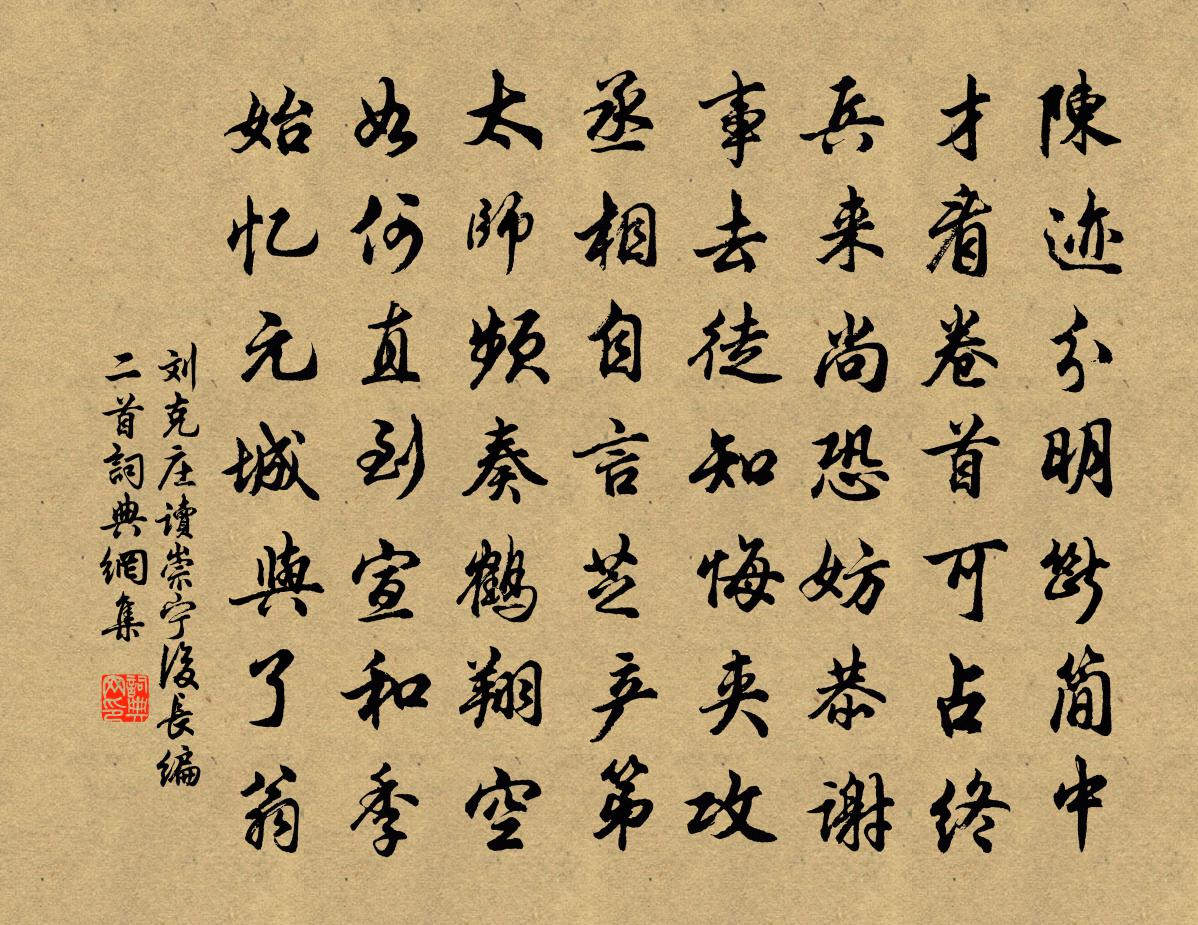 陳迹分明斷简中
才看卷首可占终
兵来尚恐妨恭谢
事去徒知悔夹攻
丞相自言芝产第
太師频奏鹤翔空
如何直到宣和季
始忆元城與了翁
刘克庄讀崇宁後長编
二首詞典網集
詞典網印